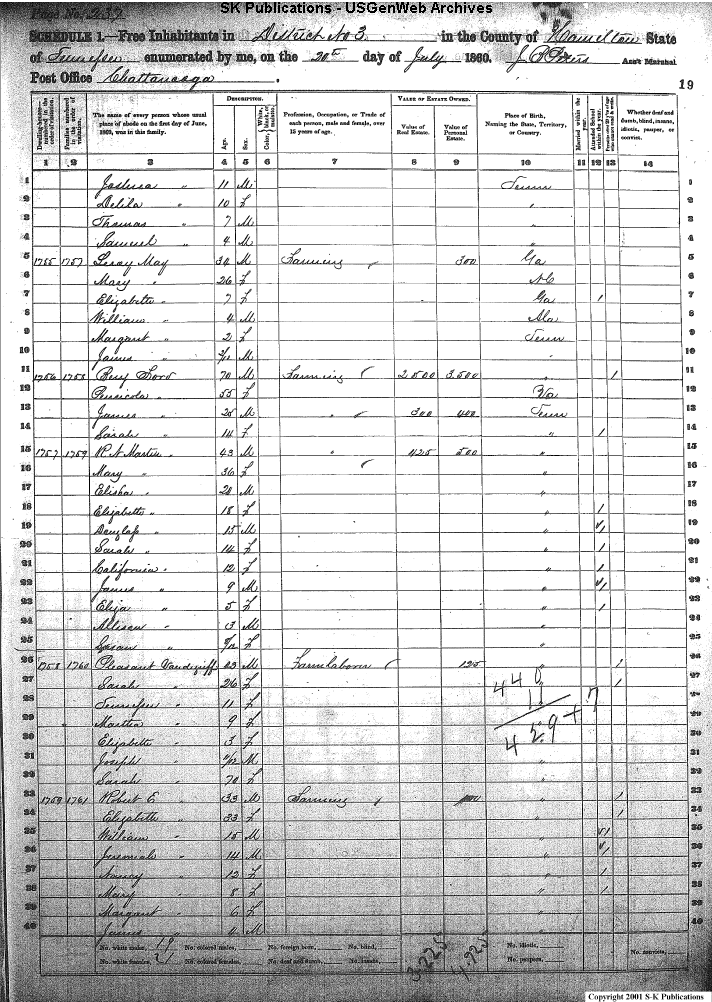 SK Publications - USGenWeb Archives
Page No. 239
SCHEDULE 1.—Free Inhabitants in District No 3 in the County of Hamilton State
of Tennessee enumerated by me, on the 20th day of July 1860. Ass't Marshal
Post Office Chattanooga.
19
DESCRIPTION. VALUE OF ESTATE OWNED.
Dwelling-houses numbered in the order of visitation. Families numbered in the order of visitation. The name of every person whose usual place of abode on the first day of June, 1860, was in this family. Age. Sex. Color, White, black, or mulatto. Profession, Occupation, or Trade of each person, male and female, over 15 years of age. Value of Real Estate. Value of Personal Estate. Place of Birth, Naming the State, Territory, or Country. Married within the year. Attended School within the year. Whether deaf and dumb, blind, insane, idiotic, pauper, or convict.
1 2 3 4 5 6 7 8 9 10 11 12 13 14
1 Joshua " 11 M Tenn 1
2 Delila " 10 F " 2
3 Thomas " 7 M " 3
4 Samuel " 4 M " 4
5 1755 1757 Leroy May 30 M Farming 300 Ga 5
6 Mary " 26 F NC 6
7 Elizabeth " 7 F Ga 1 7
8 William " 4 M Ala 8
9 Margaret " 2 F Tenn 9
10 James " M " 10
11 1756 1758 Benj 70 M Farming 2500 3500 1 11
12 55 F Va 12
13 James " 25 M " 300 400 Tenn 13
14 Sarah " 14 F " 1 14
15 1757 1759 R N Martin 43 M " 425 500 " 15
16 Mary " 36 F " 16
17 Elisha " 20 M " 17
18 Elizabeth " 18 F " 1 18
19 Douglass " 15 M " 1 19
20 Sarah " 14 F " 1 20
21 California " 12 F " 1 21
22 James " 9 M " 1 22
23 Eliza " 5 F " 1 23
24 Allison " 3 M " 24
25 Susan " F " 25
26 1758 1760 Pleasant Vandegriff 23 M Farm laborer 125 " 1 26
27 Sarah " 26 F " 1 27
28 Tennessee " 11 F " 28
29 Martha " 9 F " 29
30 Elizabeth " 3 F " 30
31 Joseph " M " 31
32 Sarah " 70 F " 32
33 1759 1761 Robert E " 33 M Farming " 1 33
34 Elizabeth " 33 F " 1 34
35 William " 15 M " 1 35
36 Jeremiah " 14 M " 1 36
37 Nancy " 12 F " 1 37
38 Mary " 8 F " 1 38
39 Margaret " 6 F " 39
40 James " M " 40
440
1
459+7
No. white males, 19 No. colored males, No. foreign born, No. blind, 3225 4925 No. idiotic, No. convicts,
No. white females, 21 No. colored females, No. deaf and dumb, No. insane, No. paupers,
Copyright 2001 S-K Publications